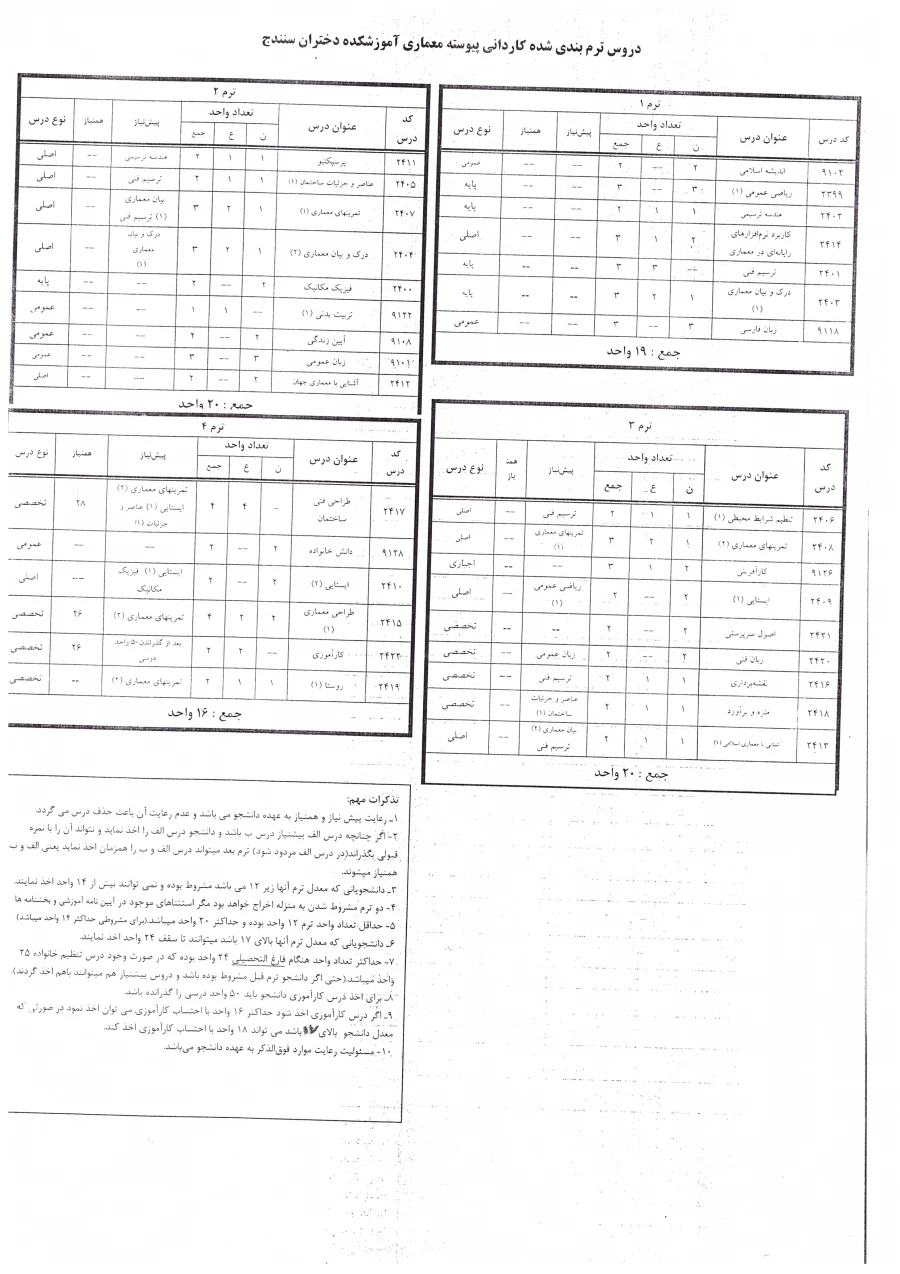 دروس ترم بندی شده کاردانی پیوسته معماری آموزشکده دختران سنندج
ترم ۱
کد درس عنوان درس تعداد واحد پیش‌نیاز همنیاز نوع درس
ن ع جمع
۹۱۰۲ اندیشه اسلامی ۲ -- ۲ -- -- عمومی
۲۳۹۹ ریاضی عمومی (۱) ۳ -- ۳ -- -- پایه
۲۴۰۲ هندسه ترسیمی ۱ ۱ ۲ -- -- پایه
۲۴۱۴ کاربرد نرم‌افزارهای رایانه‌ای در معماری ۲ ۱ ۳ -- -- اصلی
۲۴۰۱ ترسیم فنی -- ۳ ۳ -- -- پایه
۲۴۰۳ درک و بیان معماری (۱) ۱ ۲ ۳ -- -- پایه
۹۱۱۸ زبان فارسی ۳ -- ۳ -- -- عمومی
جمع : ۱۹ واحد
ترم ۲
کد درس عنوان درس تعداد واحد پیش‌نیاز همنیاز نوع درس
ن ع جمع
۲۴۱۱ پرسپکتیو ۱ ۱ ۲ هندسه ترسیمی -- اصلی
۲۴۰۵ عناصر و جزئیات ساختمان (۱) ۱ ۱ ۲ ترسیم فنی -- اصلی
۲۴۰۷ تمرینهای معماری (۱) ۱ ۲ ۳ بیان معماری (۱) ترسیم فنی -- اصلی
۲۴۰۴ درک و بیان معماری (۲) ۱ ۲ ۳ درک و بیان معماری (۱) -- اصلی
۲۴۰۰ فیزیک مکانیک ۲ -- ۲ -- -- پایه
۹۱۲۲ تربیت بدنی (۱) -- ۱ ۱ -- -- عمومی
۹۱۰۸ آیین زندگی ۲ -- ۲ -- -- عمومی
۹۱۰۱ زبان عمومی ۳ -- ۳ -- -- عمومی
۲۴۱۲ آشنایی با معماری جهان ۲ -- ۲ -- -- اصلی
جمع : ۲۰ واحد
ترم ۳
کد درس عنوان درس تعداد واحد پیش‌نیاز همنیاز نوع درس
ن ع جمع
۲۴۰۶ تنظیم شرایط محیطی (۱) ۱ ۱ ۲ ترسیم فنی -- اصلی
۲۴۰۸ تمرینهای معماری (۲) ۱ ۲ ۳ تمرینهای معماری (۱) -- اصلی
۹۱۲۶ کارآفرینی ۲ ۱ ۳ -- -- اجباری
۲۴۰۹ ایستایی (۱) ۲ -- ۲ ریاضی عمومی (۱) -- اصلی
۲۴۲۱ اصول سرپرستی ۲ -- ۲ -- -- تخصصی
۲۴۲۰ زبان فنی ۲ -- ۲ زبان عمومی -- تخصصی
۲۴۱۶ نقشه‌برداری ۱ ۱ ۲ ترسیم فنی -- تخصصی
۲۴۱۸ متره و برآورد ۱ ۱ ۲ عناصر و جزئیات ساختمان (۱) -- تخصصی
۲۴۱۳ شنایی با معماری اسلامی (۱) ۱ ۱ ۲ بیان معماری (۲) ترسیم فنی -- اصلی
جمع : ۲۰ واحد
ترم ۴
کد درس عنوان درس تعداد واحد پیش‌نیاز همنیاز نوع درس
ن ع جمع
۲۴۱۷ طراحی فنی ساختمان - ۴ ۴ تمرینهای معماری (۲) ایستایی (۱) عناصر و جزئیات (۱) ۲۸ تخصصی
۹۱۲۸ دانش خانواده ۲ -- ۲ -- -- عمومی
۲۴۱۰ ایستایی (۲) ۲ -- ۲ ایستایی (۱) فیزیک مکانیک --- اصلی
۲۴۱۵ طراحی معماری (۱) ۲ ۲ ۴ تمرینهای معماری (۲) ۲۶ تخصصی
۲۴۲۲ کارآموزی -- ۲ ۲ بعد از گذراندن ۵۰ واحد درسی ۲۶ تخصصی
۲۴۱۹ روستا (۱) ۱ ۱ ۲ تمرینهای معماری (۲) -- تخصصی
جمع : ۱۶ واحد
تذکرات مهم:
۱- رعایت پیش نیاز و همنیاز به عهده دانشجو می باشد و عدم رعایت آن باعث حذف درس می گردد.
۲- اگر چنانچه درس الف پیشنیاز درس ب باشد و دانشجو درس الف را اخذ نماید و نتواند آن را با نمره
قبولی بگذراند(در درس الف مردود شود) ترم بعد میتواند درس الف و ب را همزمان اخذ نماید یعنی الف و ب
همنیاز میشوند.
۳- دانشجویانی که معدل ترم آنها زیر ۱۲ می باشد مشروط بوده و نمی توانند بیش از ۱۴ واحد اخذ نمایند.
۴- دو ترم مشروط شدن به منزله اخراج خواهد بود مگر استثناهای موجود در آیین نامه آموزشی و بخشنامه ها
۵- حداقل تعداد واحد ترم ۱۲ واحد بوده و حداکثر ۲۰ واحد میباشد.(برای مشروطی حداکثر ۱۴ واحد میباشد)
۶- دانشجویانی که معدل ترم آنها بالای ۱۷ باشد میتوانند تا سقف ۲۴ واحد اخذ نمایند.
۷- حداکثر تعداد واحد هنگام فارغ التحصیلی ۲۴ واحد بوده که در صورت وجود درس تنظیم خانواده ۲۵
واحد میباشد.(حتی اگر دانشجو ترم قبل مشروط بوده باشد و دروس پیشنیاز هم میتوانند باهم اخذ گردند).
۸- برای اخذ درس کارآموزی دانشجو باید ۵۰ واحد درسی را گذرانده باشد.
۹- اگر درس کارآموزی اخذ شود حداکثر ۱۶ واحد با احتساب کارآموزی می توان اخذ نمود در صورتی که
معدل دانشجو بالای ۱۷ باشد می تواند ۱۸ واحد با احتساب کارآموزی اخذ کند.
۱۰- مسئولیت رعایت موارد فوق‌الذکر به عهده دانشجو می‌باشد.